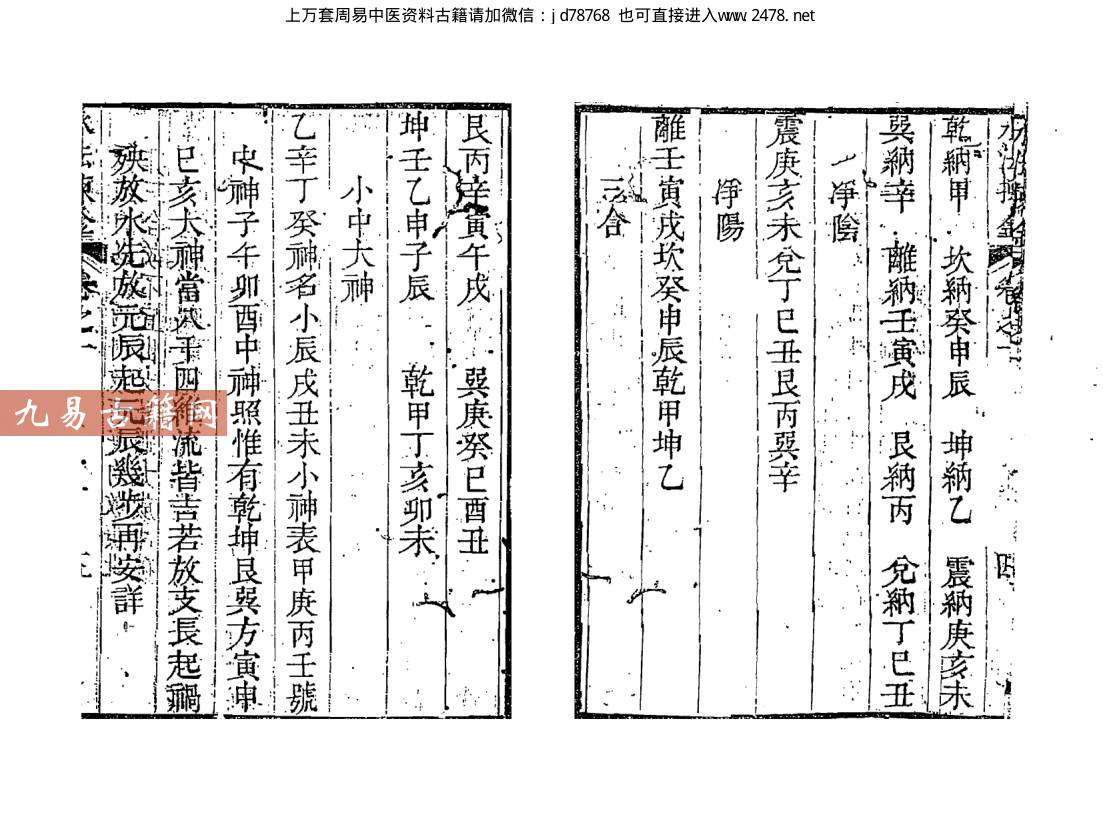 上万套周易中医资料古籍请加微信：jd78768 也可直接进入www.2478.net
乾納甲 坎納癸申辰 坤納乙 震納庚亥未
巽納辛 離納壬寅戌 艮納丙 兌納丁巳丑
淨陰
震庚亥未兌丁巳丑艮丙巽辛
淨陽
離壬寅戌坎癸申辰乾甲坤乙
三合
四
艮丙辛寅午戌 巽庚癸巳酉丑
坤壬乙申子辰 乾甲丁亥卯未
小中大神
乙辛丁癸神名小辰戌丑未小神表甲庚丙壬號
中神子午卯酉中神照惟有乾坤艮巽方寅申
巳亥大神當八干四維流皆吉若放支長起禍
殃放水先放元辰起元辰幾步再安詳
九易古籍网